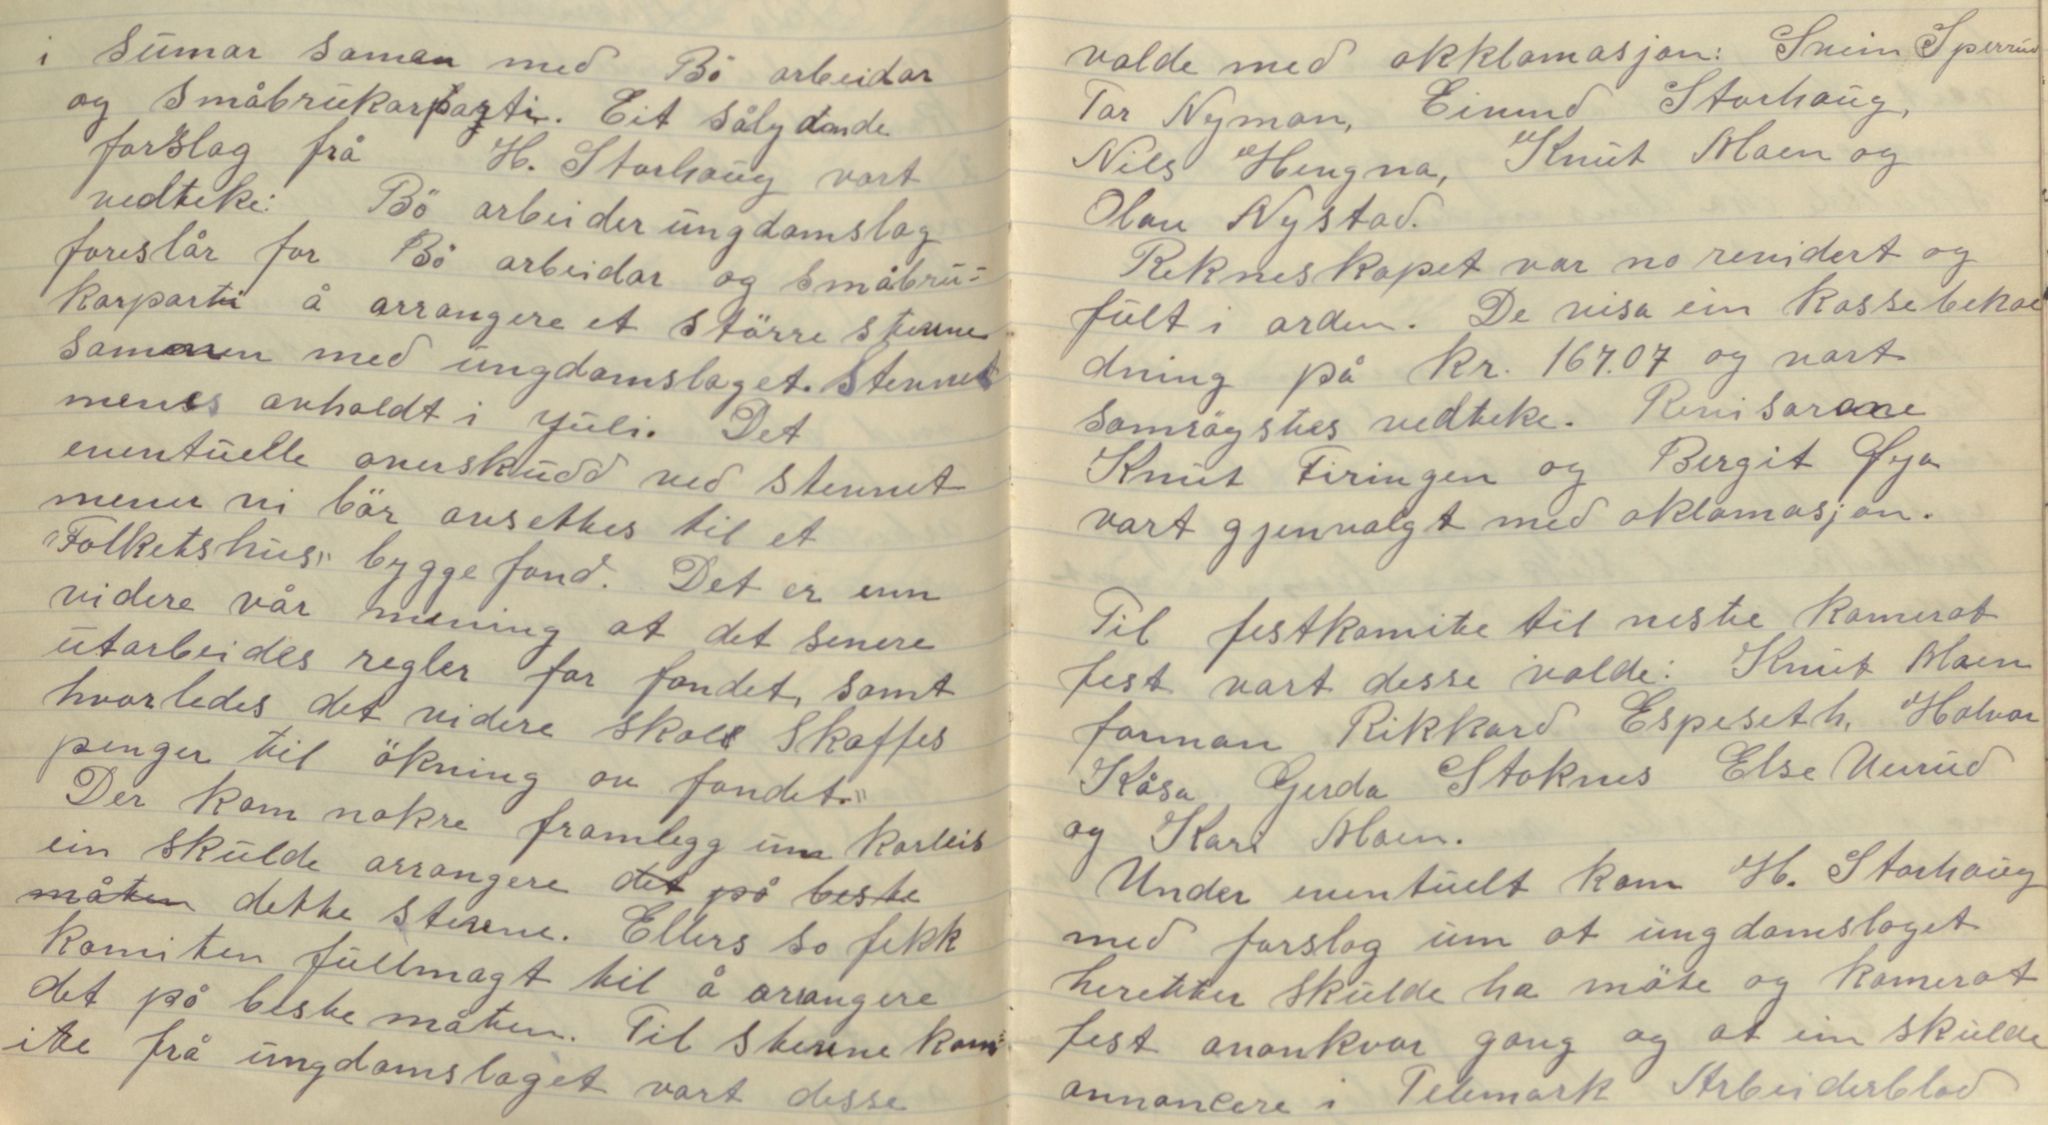 i sumar saman med Bö arbeidar
og småbrukarparti. Eit sålydande
forslag frå H. Storhaug vart
vedteke: Bö arbeider ungdomslag
foreslår for Bö arbeidar og småbru=
karparti å arrangere et större stevne
sammen med ungdomslaget. Stevnet
menes avholdt i juli. Det
eventuelle overskudd ved stevnet
mener vi bör avsettes til et
"Folketshus" byggefond. Det er enn
videre vår mening at det senere
utarbeides regler for fondet, samt
hvorledes det videre skal skaffes
penger til ökning av fondet."
Der kom nokre framlegg um korleis
ein skulde arrangere det på beste
måten dette stevne. Ellers so fekk
komiten fullmagt til å arrangere
det på beste måten. Til stevne kom=
ite frå ungdomslaget vart desse
valde med akklamasjon: Svein Sperrud
Tor Nyman, Eivind Storhaug,
Nils Hengna, Knut Moen og
Olav Nystad.
Rekneskapet var no revidert og
fult i orden. De visa ein kassebehol
dning på kr. 167.07 og vart
samrøystes vedteke. Revisorane
Knut Firingen og Bergit Øya
vart gjenvalgt med aklamasjon.
Til festkomite til neste kamerat
fest vart desse valde: Knut Moen
forman Rikkard Espeseth, Halvor
Kåsa Gerda Stoknes Else Uvrud
og Kari Moen.
Under eventuelt kom H. Storhaug
med forslag um at ungdomslaget
heretter skulde ha möte og kamerat
fest anankvar gong og at ein skulde
annoncere i Telemark Arbeiderblad